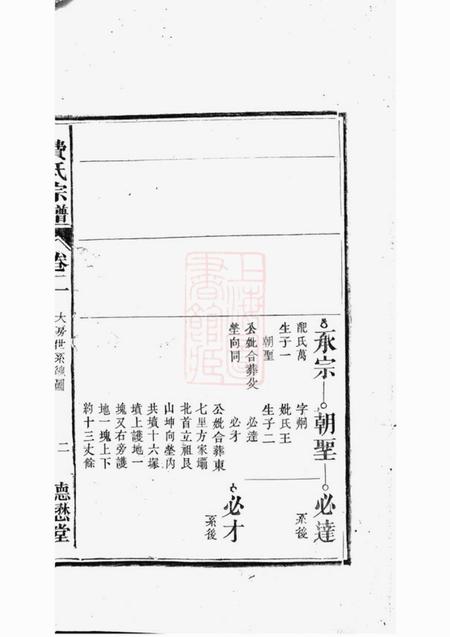 承宗
配氏萬
生子一
朝聖
公妣合葬
塋向同
朝聖
妣氏王
生子二
必達
必才
公妣合葬東
七里方家壩
北首立祖艮
山坤向塋內
共墳十六塚
墳上護地一
塊又右旁護
地一塊上下
約十三丈餘
必達
系後
必才
系後
費氏宗譜
卷二
大房世系總圖
二
德懋堂
上海圖書館藏